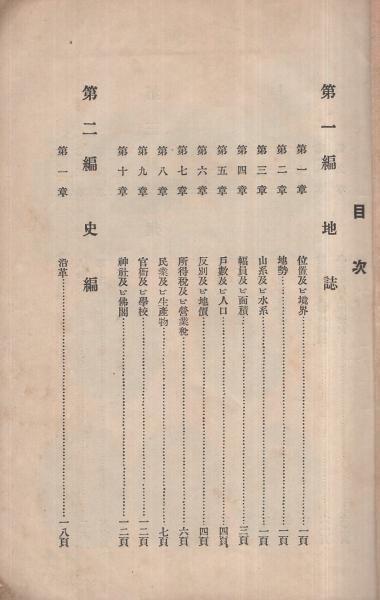 目次
第一編 地誌
第一章 位置及ビ境界……一頁
第二章 地勢……一頁
第三章 山系及ビ水系……一頁
第四章 幅員及ビ面積……三頁
第五章 戸數及ビ人口……四頁
第六章 反別及ビ地價……四頁
第七章 所得稅及ビ營業稅……六頁
第八章 民業及ビ生產物……七頁
第九章 官衙及ビ學校……一二頁
第十章 神社及ビ佛閣……一二頁
第二編 史編
第一章 沿革……一八頁